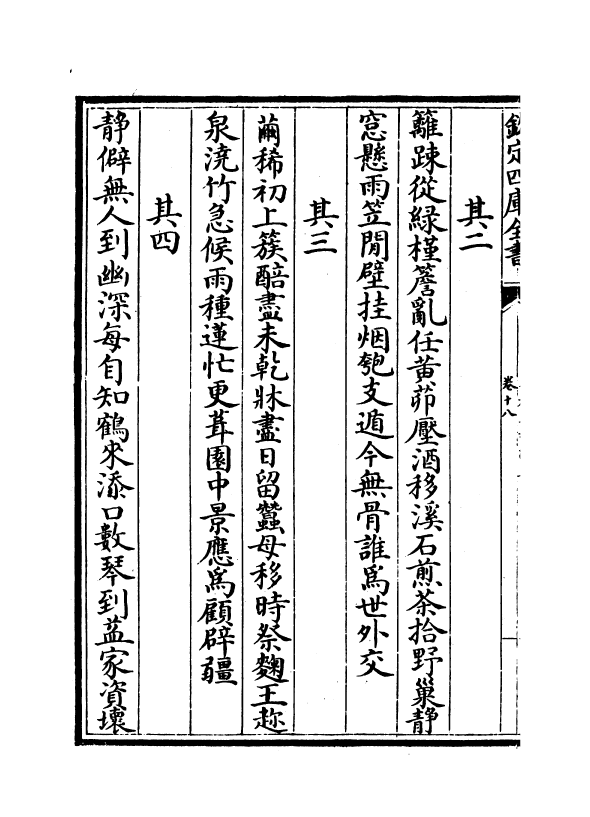 欽定四庫全書
卷十八
其二
籬疎從緑槿簷亂任黄茆壓酒移溪石煎茶拾野巢靜
窓懸雨笠閒壁挂烟匏支遁今無骨誰為世外交
其三
繭稀初上簇醅盡未乾牀盡日留蠶母移時祭麴王趂
泉澆竹急候雨種蓮忙更葺園中景應為顧辟疆
其四
静僻無人到幽深每自知鶴來添口數琴到益家資壞